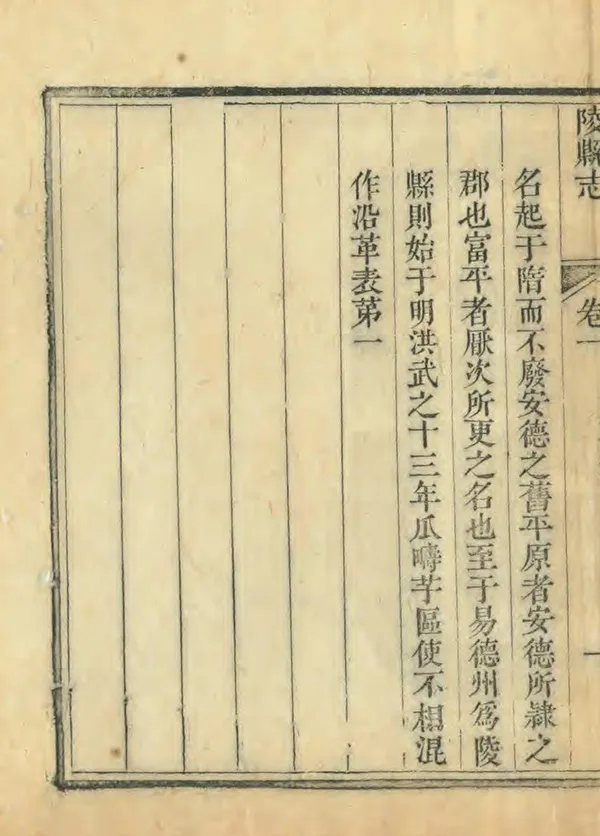 陵縣志
卷一
一
名起于隋而不廢安德之舊平原者安德所隷之
郡也富平者厭次所更之名也至于易德州爲陵
縣則始于明洪武之十三年瓜疇芋區使不相混
作沿革表第一